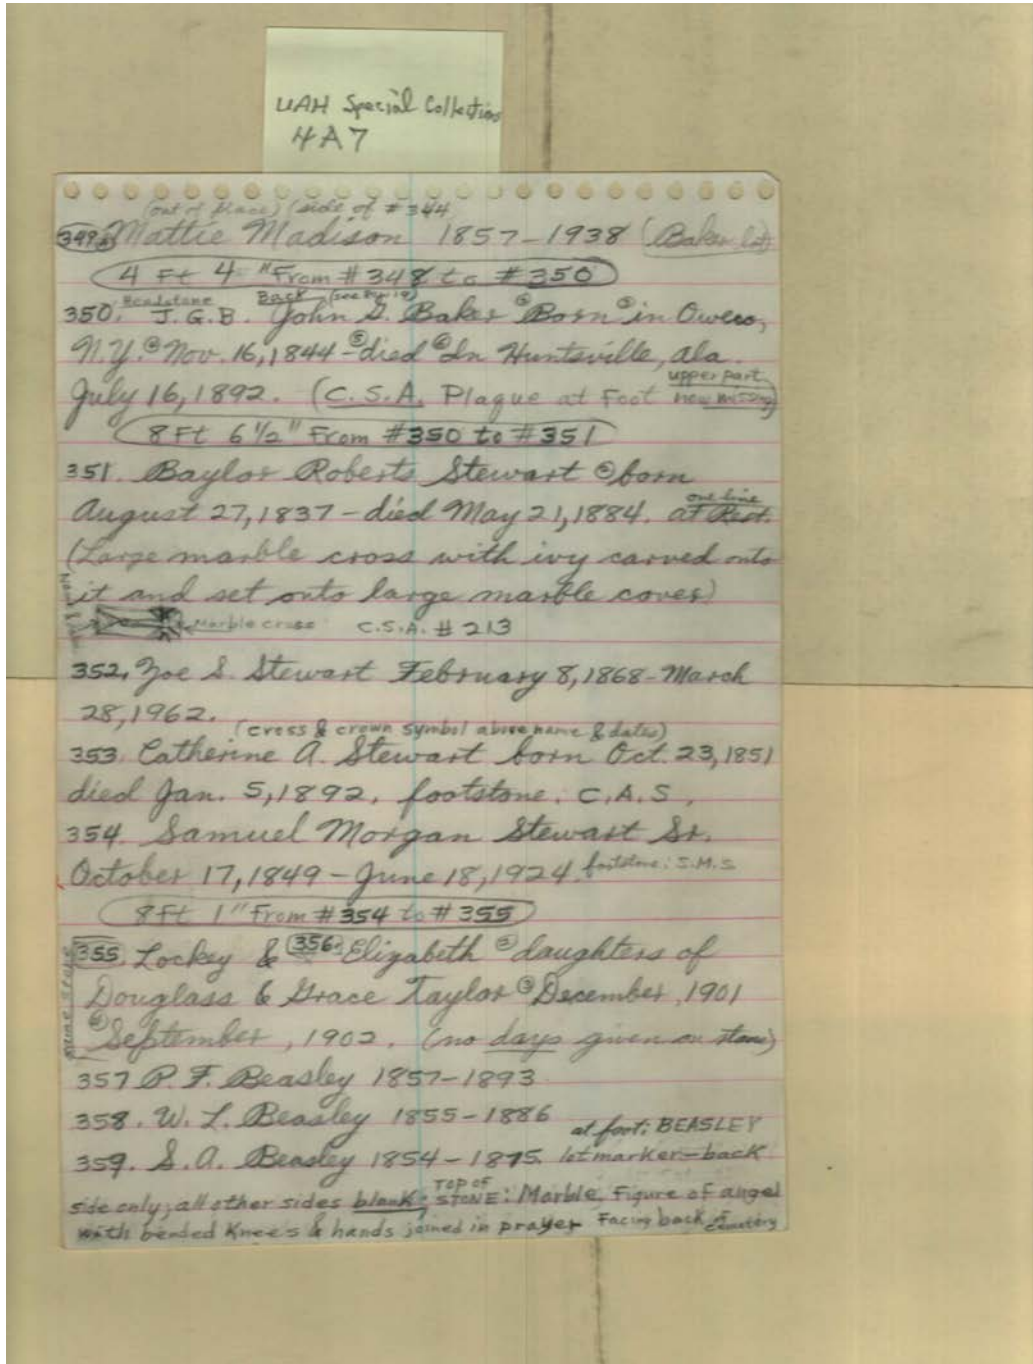 UAH Special Collections
4A7
(out of place) (side of #344
349. Mattie Madison 1857-1938 (Baker lot)
4 Ft 4" From #348 to #350
Headstone Back
350. J.G.B. John G. Baker ② Born ③ in Owego,
N.Y. ④ Nov. 16, 1844 - ⑤ died ⑥ In Huntsville, Ala.
upper part
July 16, 1892. (C.S.A. Plaque at Foot now missing)
8 Ft 6 1/2" From #350 to #351
351. Baylor Roberts Stewart ② born
one line
August 27, 1837 - died May 21, 1884. at Rest.
(Large marble cross with ivy carved onto
it and set onto large marble cover)
Marble cross C.S.A. #213
352. Zoe S. Stewart February 8, 1868 - March
28, 1962.
(cross & crown symbol above name & dates)
353. Catherine A. Stewart born Oct. 23, 1851
died Jan. 5, 1892. footstone. C.A.S.
354. Samuel Morgan Stewart Sr.
October 17, 1849 - June 18, 1924. footstone: S.M.S
8 Ft 1" From #354 to #355
same stone
355. Lockey & 356. Elizabeth ② daughters of
Douglass & Grace Taylor ③ December, 1901
④ September, 1902. (no days given on stone)
357 P. F. Beasley 1857-1893
358. W. L. Beasley 1855-1886
at foot: BEASLEY
359. S. A. Beasley 1854-1875. lot marker-back
TOP OF
side only; all other sides blank; STONE: Marble, Figure of angel
with bended Knee's & hands joined in prayer Facing back of cemetery